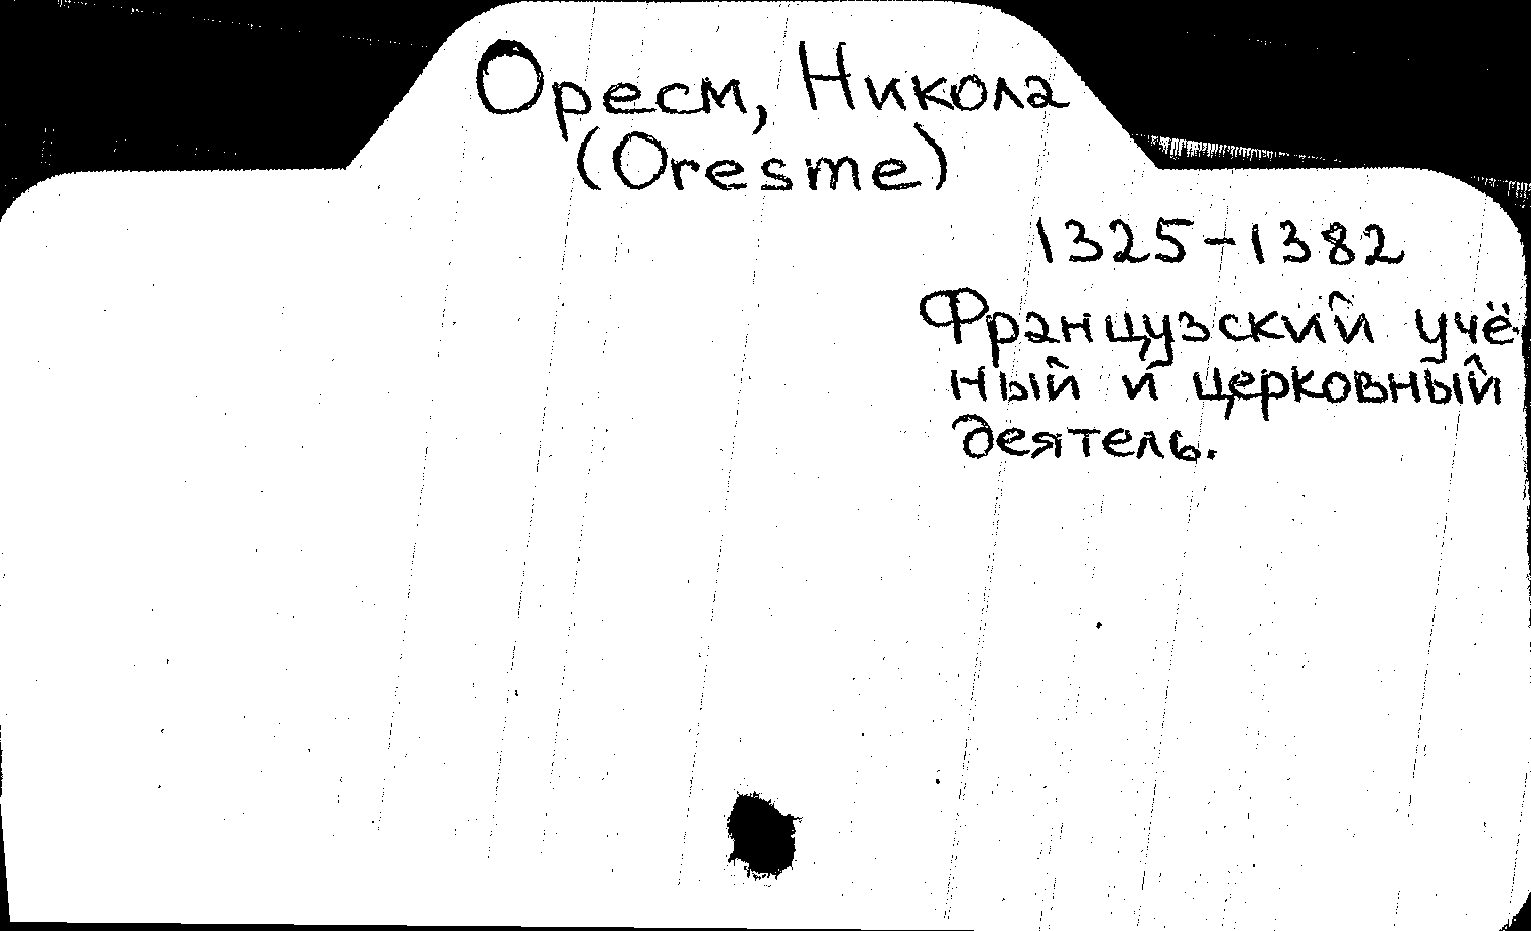 Оресм, Никола
(Oresme)
1325-1382
Французский учё
ный и церковный
деятель.